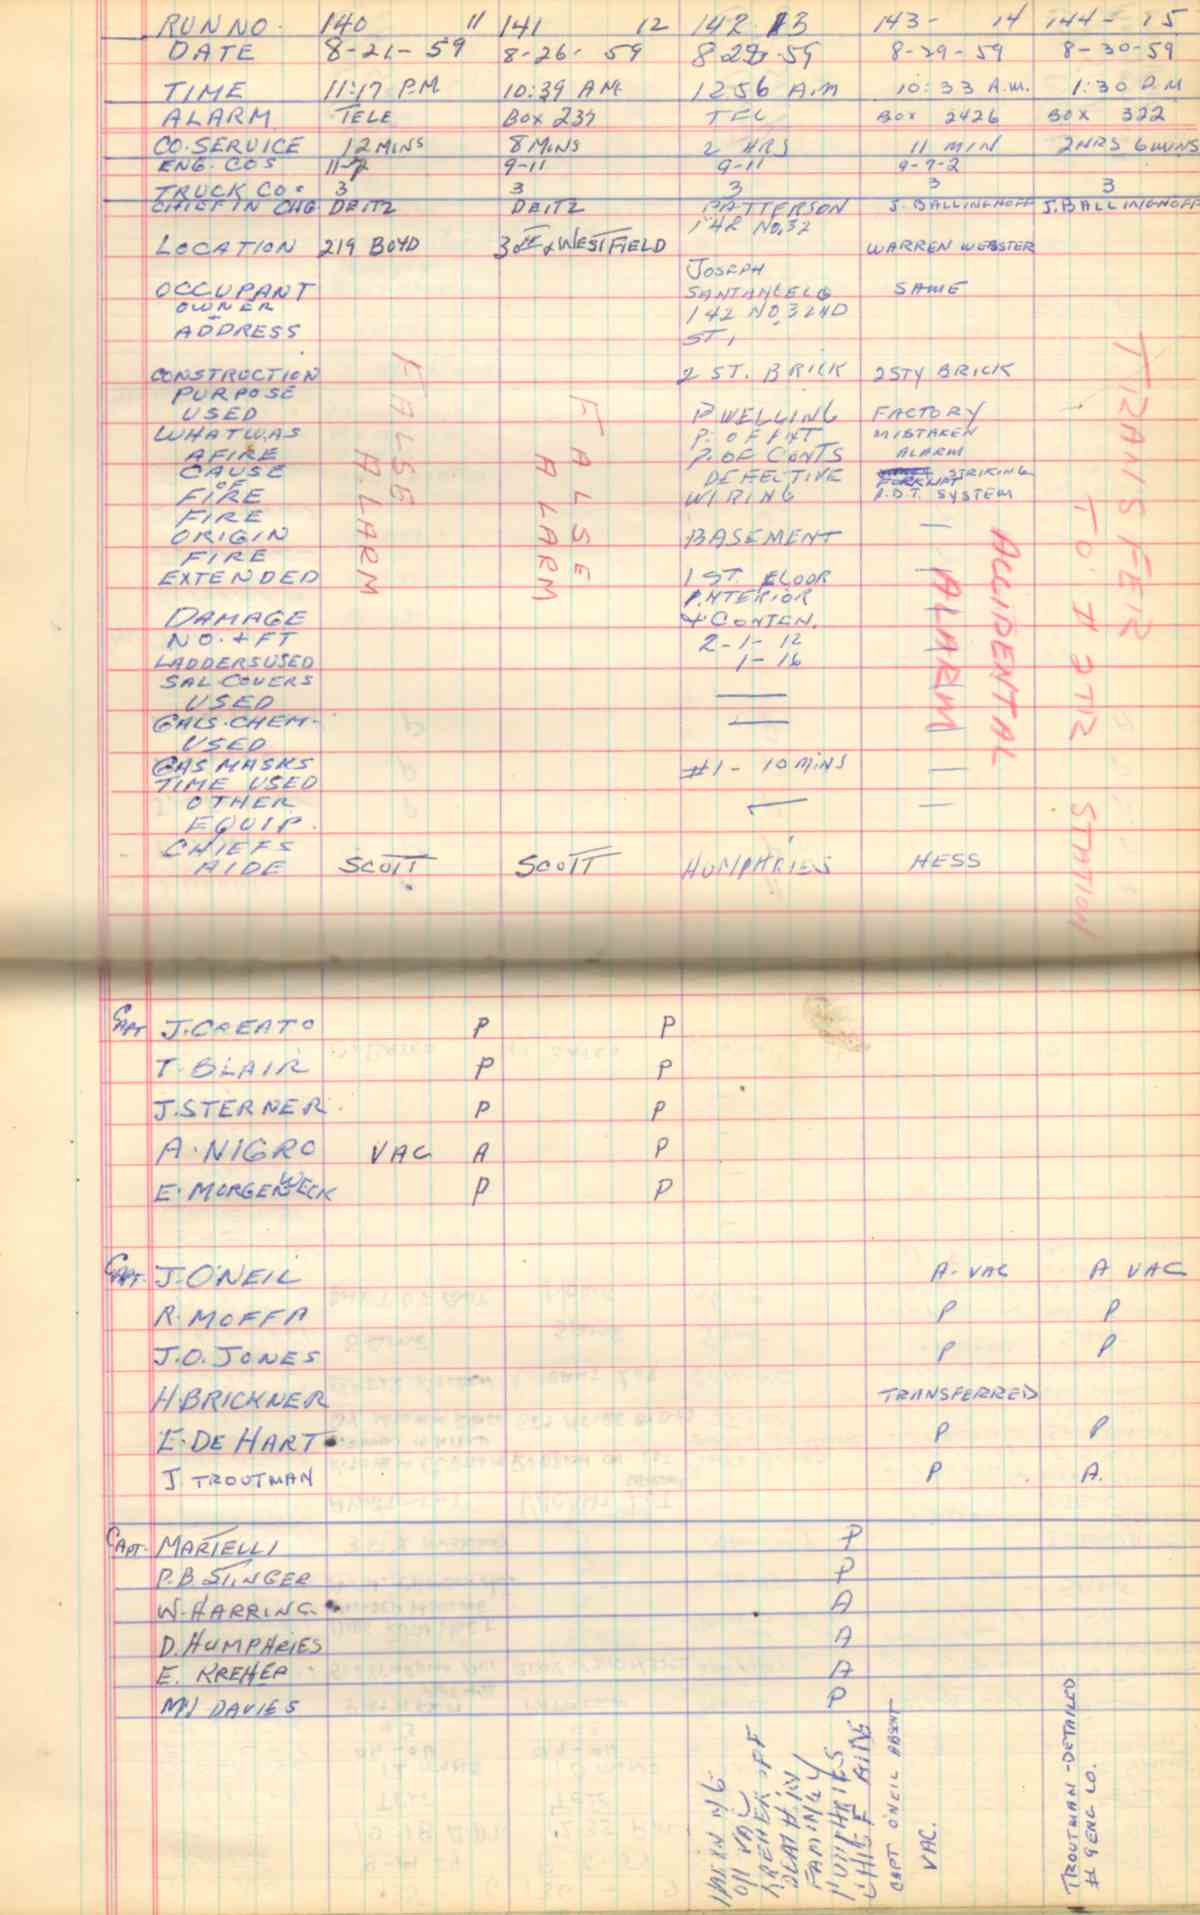 RUN NO. 140 11 141 12 142 13 143- 14 144- 15
DATE 8-21-59 8-26-59 8-29-59 8-29-59 8-30-59
TIME 11:17 P.M 10:39 A.M. 1256 A.M 10:33 A.M. 1:30 P.M
ALARM TELE BOX 237 TEL BOX 2426 BOX 322
CO. SERVICE 12 MINS 8 MINS 2 HRS 11 MIN 2 HRS 6 MINS
ENG. COS 11-7 9-11 9-11 9-7-2
TRUCK CO. 3 3 3 3 3
CHIEF IN CHG DEITZ DEITZ PATTERSON J. BALLINGHOFF J. BALLINGHOFF
142 NO. 32
LOCATION 219 BOYD 3RD & WESTFIELD WARREN WEBSTER
JOSEPH
OCCUPANT SANTANGELO SAME
OWNER 142 NO. 32ND
ADDRESS ST.
CONSTRUCTION 2 ST. BRICK 2 STY BRICK
PURPOSE
USED DWELLING FACTORY
WHAT WAS P. OF INT MISTAKEN
AFIRE P. OF CONTS ALARM
CAUSE DEFECTIVE STRIKING
OF
FIRE WIRING A.D.T. SYSTEM
FIRE
ORIGIN BASEMENT —
FIRE
EXTENDED 1 ST. FLOOR
INTERIOR
DAMAGE & CONTEN.
NO. & FT 2-1-12
LADDERS USED 1-16
SAL. COVERS
USED —
GALS. CHEM. —
USED
GAS MASKS #1- 10 MINS —
TIME USED
OTHER — —
EQUIP.
CHIEFS
AIDE SCOTT SCOTT HUMPHRIES HESS
FALSE
ALARM
FALSE
ALARM
ACCIDENTAL
ALARM
TRANSFER
TO #2 TR STATION
CAPT J. CREATO P P
T. BLAIR P P
J. STERNER P P
A. NIGRO VAC A P
E. MORGENWECK P P
CAPT. J. O'NEIL A. VAC A VAC
R. MOFFA P P
J.O. JONES P P
H BRICKNER TRANSFERRED
E. DE HART P P
J. TROUTMAN P A.
CAPT. MARTELLI P
P.B. STINGER P
W. HARRING. A
D. HUMPHRIES A
E. KREHER A
M.J DAVIES P
HARRING
ON VAC
KREHER OFF
DEATH IN
FAMILY
HUMPHRIES
CHIEF AIDE
CAPT O'NEIL ABSENT
VAC.
TROUTMAN - DETAILED
# 9 ENG CO.